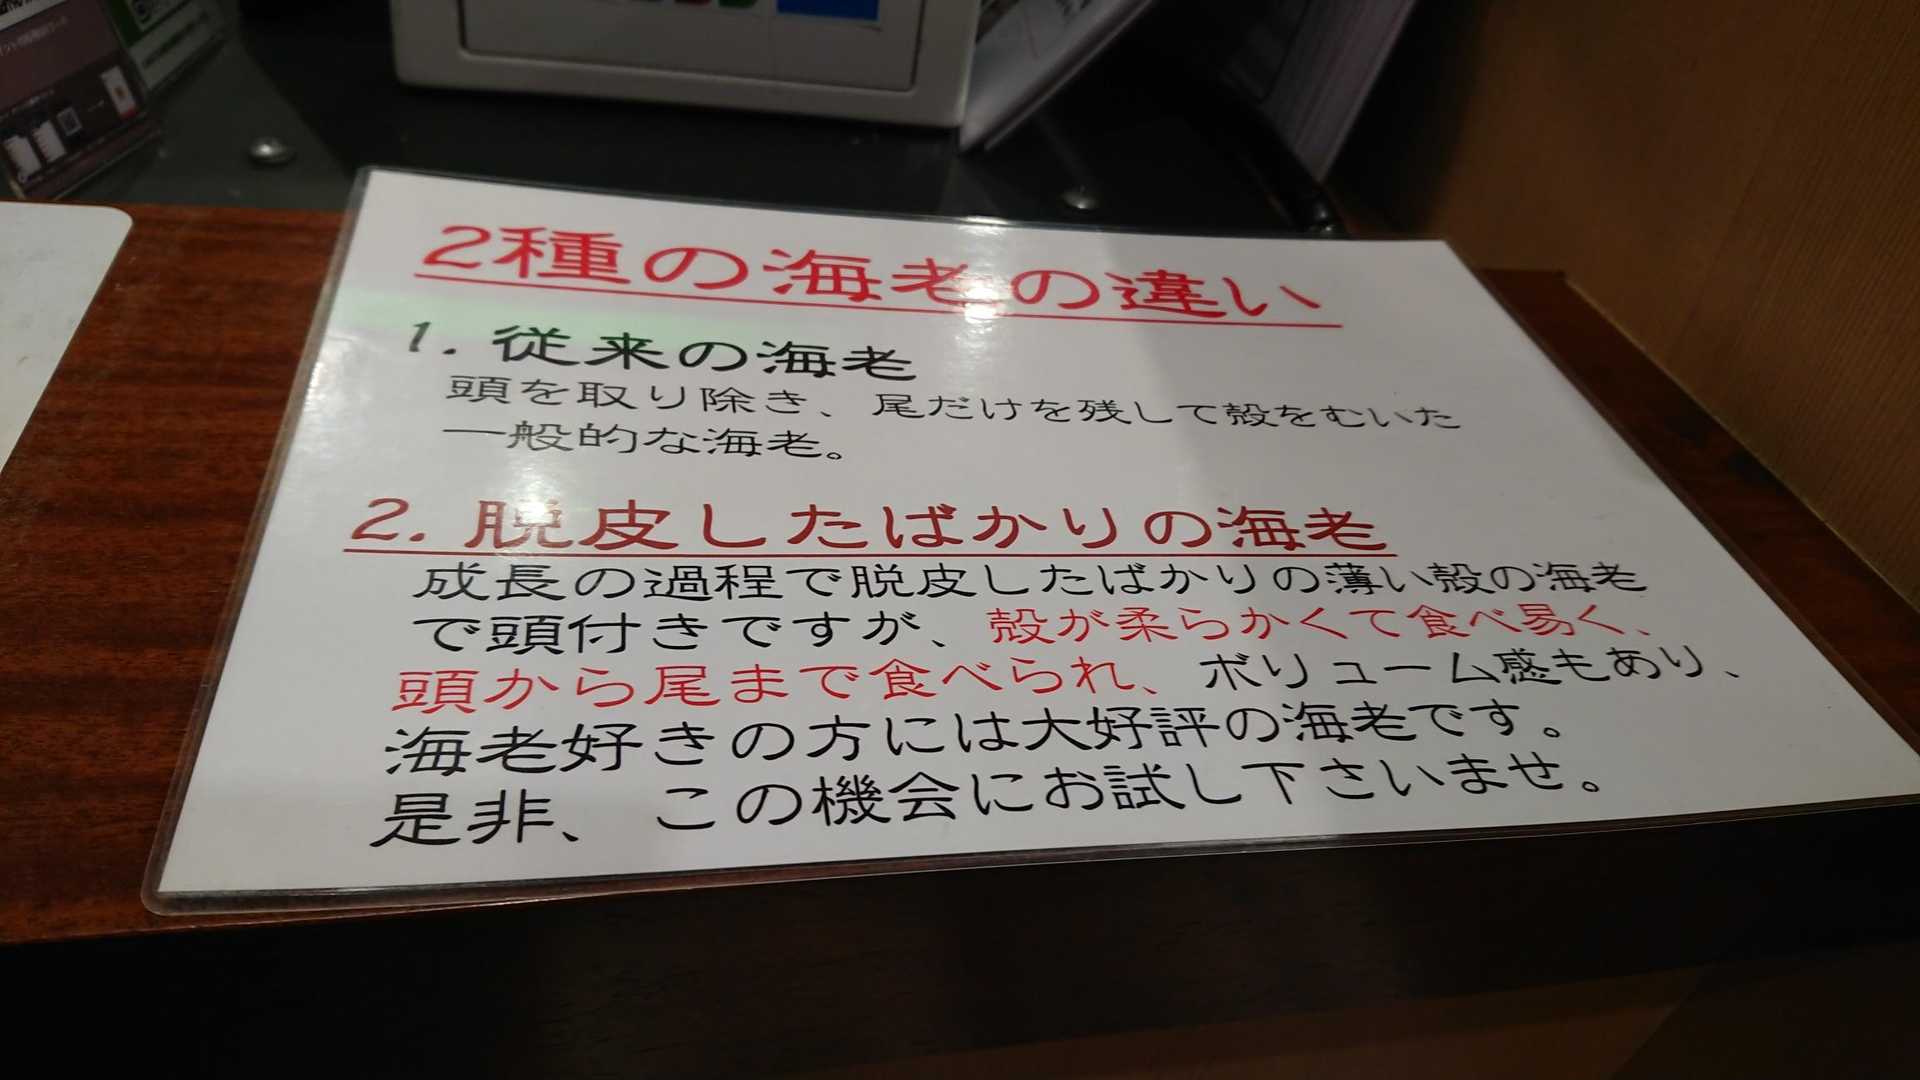 2種の海老の違い
1. 従来の海老
頭を取り除き、尾だけを残して殻をむいた
一般的な海老。
2. 脱皮したばかりの海老
成長の過程で脱皮したばかりの薄い殻の海老
で頭付きですが、殻が柔らかくて食べ易く、
頭から尾まで食べられ、ボリューム感もあり、
海老好きの方には大好評の海老です。
是非、この機会にお試し下さいませ。